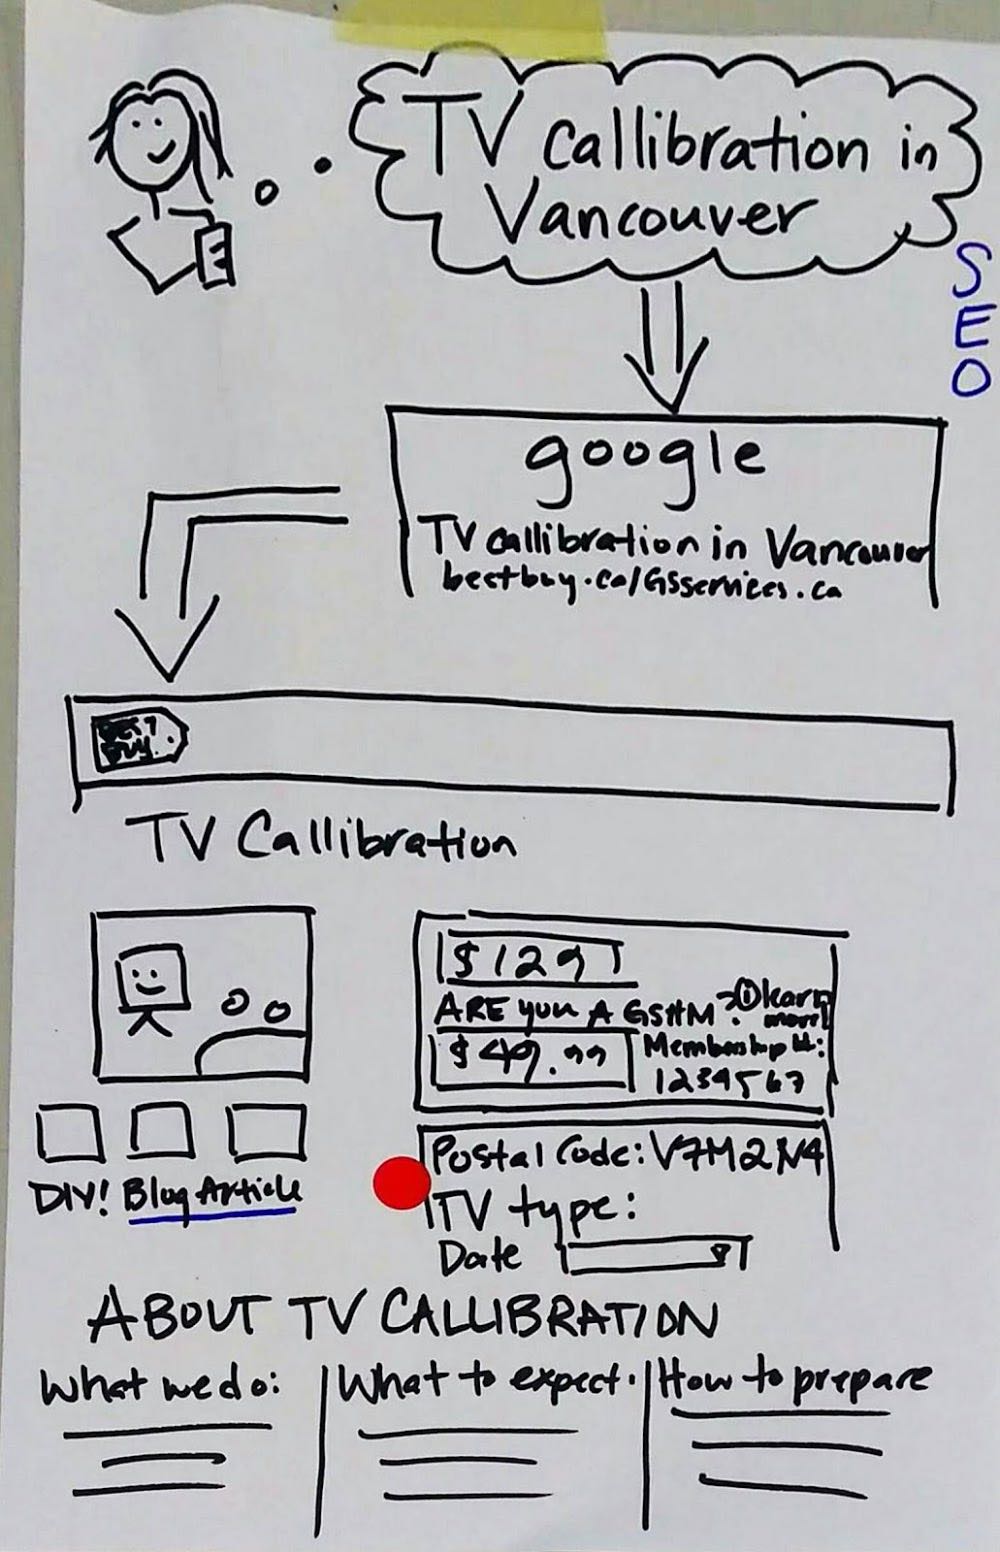 TV callibration in
Vancouver
SEO
google
TV callibration in Vancouver
bestbuy.ca/GSservices.ca
BEST
BUY
TV Callibration
$129
ARE you A GSHM? i learn
more
$49.99
Membership #:
1234567
Postal Code: V7M2N4
TV type:
Date
DIY! Blog Article
ABOUT TV CALLIBRATION
What we do:
What to expect.
How to prepare